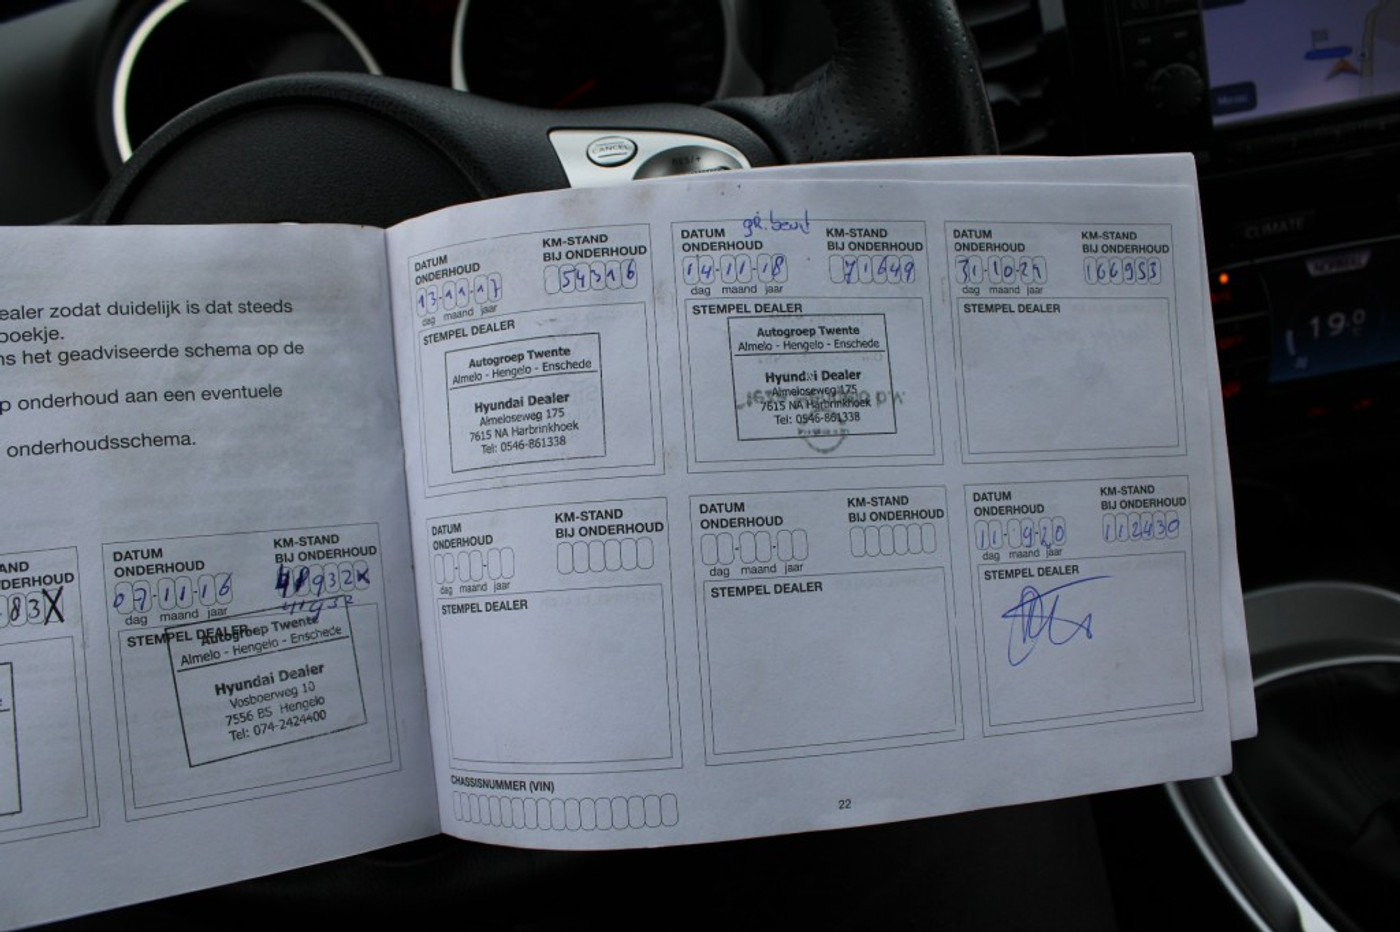 CANCEL
RES/+
Menu
CLIMATE
19.0
ealer zodat duidelijk is dat steeds
boekje.
ns het geadviseerde schema op de
p onderhoud aan een eventuele
onderhoudsschema.
AND
DERHOUD
83X
DATUM
ONDERHOUD
07-11-16
dag maand jaar
KM-STAND
BIJ ONDERHOUD
41932
STEMPEL DEALER
Autogroep Twente
Almelo - Hengelo - Enschede
Hyundai Dealer
Vosboerweg 10
7556 BS Hengelo
Tel: 074-2424400
DATUM
ONDERHOUD
13-11-17
dag maand jaar
KM-STAND
BIJ ONDERHOUD
54316
STEMPEL DEALER
Autogroep Twente
Almelo - Hengelo - Enschede
Hyundai Dealer
Almeloseweg 175
7615 NA Harbrinkhoek
Tel: 0546-861338
gr. beurt
DATUM
ONDERHOUD
14-11-18
dag maand jaar
KM-STAND
BIJ ONDERHOUD
71649
STEMPEL DEALER
Autogroep Twente
Almelo - Hengelo - Enschede
Hyundai Dealer
Almeloseweg 175
7615 NA Harbrinkhoek
Tel: 0546-861338
DATUM
ONDERHOUD
31-10-24
dag maand jaar
KM-STAND
BIJ ONDERHOUD
166953
STEMPEL DEALER
DATUM
ONDERHOUD
dag maand jaar
KM-STAND
BIJ ONDERHOUD
STEMPEL DEALER
DATUM
ONDERHOUD
dag maand jaar
KM-STAND
BIJ ONDERHOUD
STEMPEL DEALER
DATUM
ONDERHOUD
11-9-20
dag maand jaar
KM-STAND
BIJ ONDERHOUD
112430
STEMPEL DEALER
CHASSISNUMMER (VIN)
22